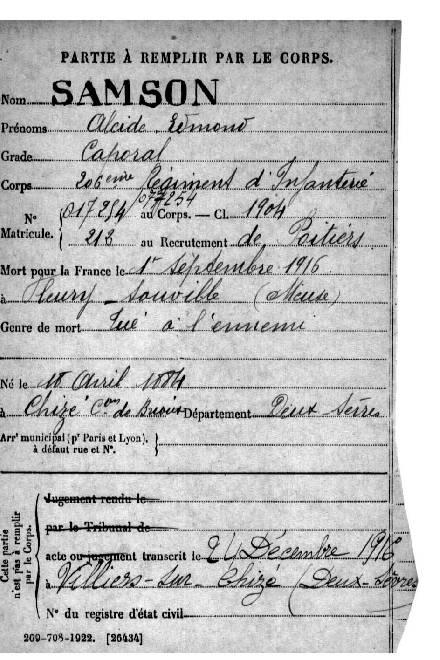 PARTIE À REMPLIR PAR LE CORPS.
Nom SAMSON
Prénoms Alcide Edmond
Grade Caporal
Corps 206eme Régiment d'Infanterie
077254
N° 017254 au Corps. — Cl. 1904
Matricule. 213 au Recrutement de Poitiers
Mort pour la France le 1er Septembre 1916
à Fleury-Souville (Meuse)
Genre de mort Tué à l'ennemi
Né le 10 Avril 1884
à Chizé Con de Brioux Département Deux Sèvres
Arrt municipal (pr Paris et Lyon),
à défaut rue et N°.
Cette partie
n'est pas à remplir
par le Corps.
Jugement rendu le
par le Tribunal de
acte ou jugement transcrit le 24 Décembre 1916
à Villiers-sur-Chizé (Deux-Sèvres
N° du registre d'état civil
269-708-1922. [26434]